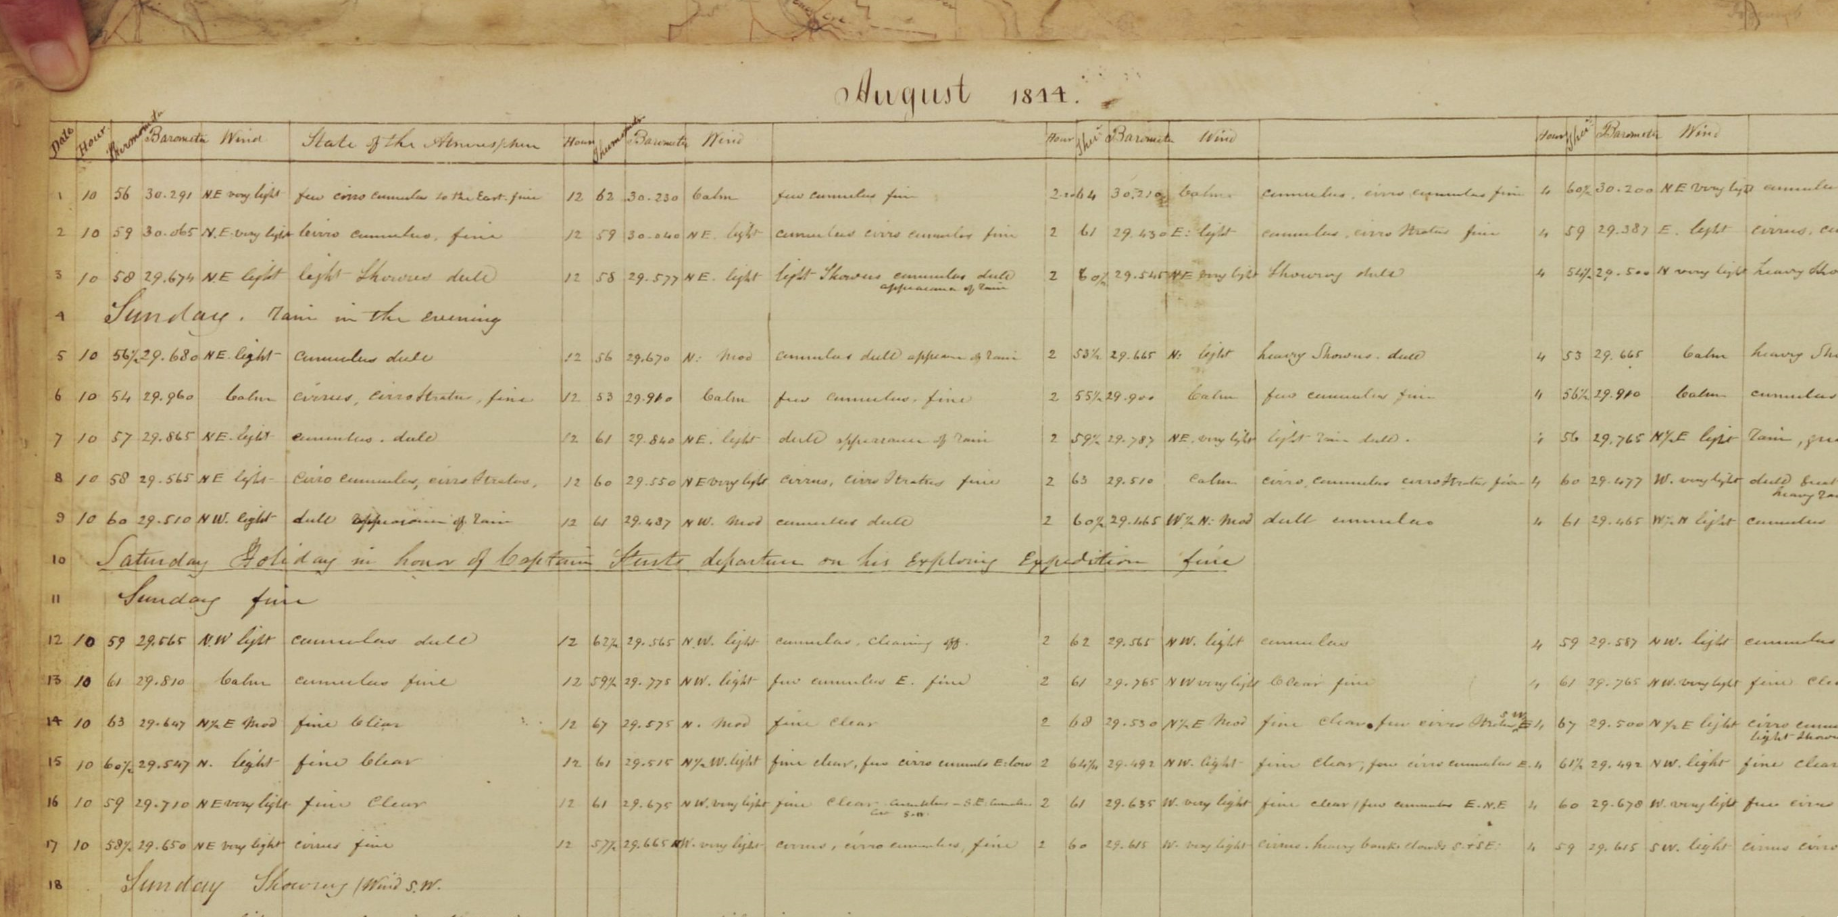 August 1844.
Date Hour Thermometer Barometer Wind State of the Atmosphere Hour Thermometer Barometer Wind Hour Ther Barometer Wind Hour Ther Barometer Wind
1 10 56 30.291 N.E very light few cirro cumulus to the East. fine 12 62 30.230 Calm few cumulus fine 2 64 30.210 Calm cumulus, cirro cumulus fine 4 60½ 30.200 N E very light cumulus
2 10 59 30.065 N.E. very light Cirro cumulus, fine 12 59 30.040 N E. light cumulus cirro cumulus fine 2 61 29.430 E: light cumulus, cirro stratus fine 4 59 29.387 E. light cirrus,
3 10 58 29.674 N.E light light Showers dull 12 58 29.577 N E. light light Showers cumulus dull 2 60½ 29.545 N E very light Showery dull 4 54½ 29.500 N very light heavy
appearance of rain
4 Sunday. rain in the evening
5 10 56½ 29.680 N E. light cumulus dull 12 56 29.670 N: Mod cumulus dull appear of rain 2 53½ 29.665 N: light heavy Showers. dull 4 53 29.665 Calm heavy
6 10 54 29.960 Calm cirrus, cirro stratus, fine 12 53 29.910 Calm few cumulus. fine 2 55½ 29.900 Calm few cumulus fine 4 56½ 29.910 Calm cumulus
7 10 57 29.865 N E. light cumulus. dull 12 61 29.840 N E. light dull appearance of rain 2 59½ 29.787 N E. very light light rain dull. 56 29.765 N½E light rain,
8 10 58 29.565 N E light cirro cumulus, cirro stratus, 12 60 29.550 N E very light cirrus, cirro stratus fine 2 63 29.510 Calm cirro, cumulus cirro stratus fine 4 60 29.477 W. very light dull
heavy
9 10 60 29.510 N W. light dull appearance of rain 12 61 29.487 N W. Mod cumulus dull 2 60½ 29.465 W½N: Mod dull cumulus 4 61 29.465 W½N light cumulus
10 Saturday Holiday in honor of Captain Sturts departure on his Exploring Expedition fine
11 Sunday fine
12 10 59 29.565 N.W light cumulus dull 12 62½ 29.565 N.W. light cumulus, clearing off. 2 62 29.565 N W. light cumulus 4 59 29.587 N W. light cumulus
13 10 61 29.810 Calm cumulus fine 12 59½ 29.775 N W. light few cumulus E. fine 2 61 29.765 N W very light Clear fine 4 61 29.765 N W. very light fine
14 10 63 29.647 N½E Mod fine Clear 12 67 29.575 N. Mod fine Clear 2 68 29.530 N½E Mod fine clear few cirro stratus 4 67 29.500 N½E light cirro
light
15 10 60½ 29.547 N. light fine Clear 12 61 29.515 N½W. light fine clear, few cirro cumulo E. low 2 64¼ 29.492 N W. light fine clear, few cirro cumulus E. 4 61½ 29.492 N W. light fine clear
16 10 59 29.710 N E very light fine Clear 12 61 29.675 N W. very light fine Clear cumulus S.E. cumulus 2 61 29.635 W. very light fine clear, few cumulus E.N.E 4 60 29.670 W. very light few cirro
S.W.
17 10 58½ 29.650 N E very light cirrus fine 12 57½ 29.665 W. very light cirrus, cirro cumulus, fine 2 60 29.615 W. very light cirrus. heavy bank clouds S. & S E. 4 59 29.615 S W. light cirrus cirro
18 Sunday Showery / Wind S.W.